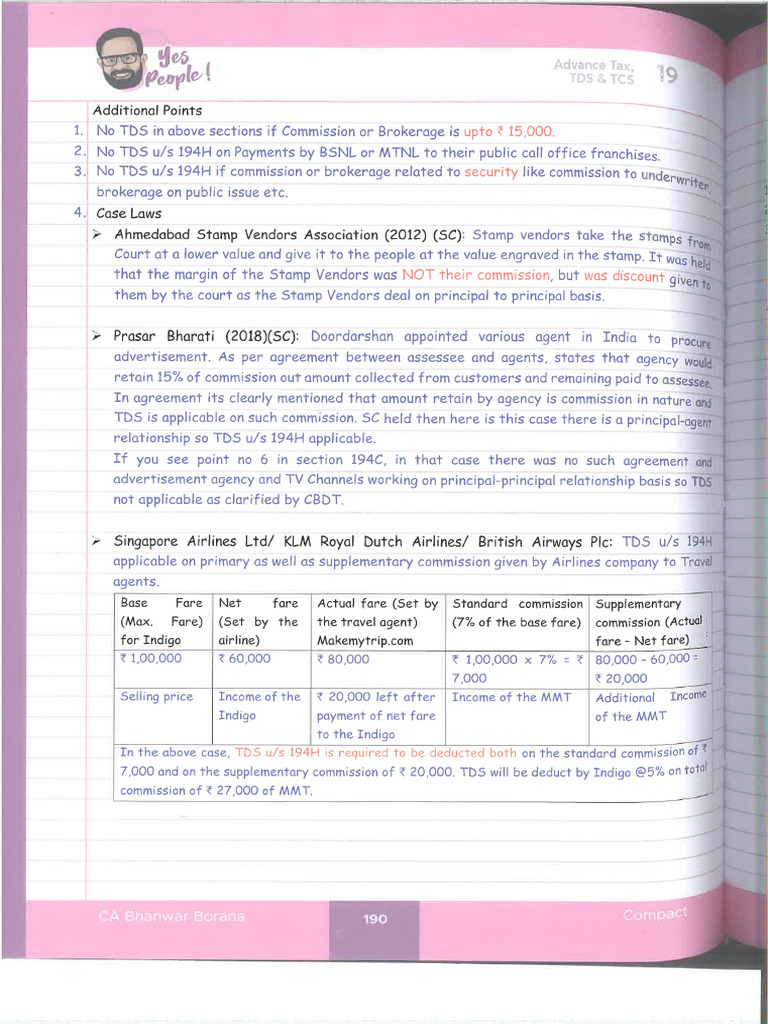 Yes
People!
Advance Tax,
TDS & TCS
19
Additional Points
1. No TDS in above sections if Commission or Brokerage is upto ₹ 15,000.
2. No TDS u/s 194H on Payments by BSNL or MTNL to their public call office franchises.
3. No TDS u/s 194H if commission or brokerage related to security like commission to underwriter,
brokerage on public issue etc.
4. Case Laws
➢ Ahmedabad Stamp Vendors Association (2012) (SC): Stamp vendors take the stamps from
Court at a lower value and give it to the people at the value engraved in the stamp. It was held
that the margin of the Stamp Vendors was NOT their commission, but was discount given to
them by the court as the Stamp Vendors deal on principal to principal basis.
➢ Prasar Bharati (2018)(SC): Doordarshan appointed various agent in India to procure
advertisement. As per agreement between assessee and agents, states that agency would
retain 15% of commission out amount collected from customers and remaining paid to assessee.
In agreement its clearly mentioned that amount retain by agency is commission in nature and
TDS is applicable on such commission. SC held then here is this case there is a principal-agent
relationship so TDS u/s 194H applicable.
If you see point no 6 in section 194C, in that case there was no such agreement and
advertisement agency and TV Channels working on principal-principal relationship basis so TDS
not applicable as clarified by CBDT.
➢ Singapore Airlines Ltd/ KLM Royal Dutch Airlines/ British Airways Plc: TDS u/s 194H
applicable on primary as well as supplementary commission given by Airlines company to Travel
agents.
Base Fare
(Max. Fare)
for Indigo
Net fare
(Set by the
airline)
Actual fare (Set by
the travel agent)
Makemytrip.com
Standard commission
(7% of the base fare)
Supplementary
commission (Actual
fare – Net fare)
₹ 1,00,000
₹ 60,000
₹ 80,000
₹ 1,00,000 x 7% = ₹
7,000
80,000 – 60,000 =
₹ 20,000
Selling price
Income of the
Indigo
₹ 20,000 left after
payment of net fare
to the Indigo
Income of the MMT
Additional Income
of the MMT
In the above case, TDS u/s 194H is required to be deducted both on the standard commission of ₹
7,000 and on the supplementary commission of ₹ 20,000. TDS will be deduct by Indigo @5% on total
commission of ₹ 27,000 of MMT.
CA Bhanwar Borana
190
Compact